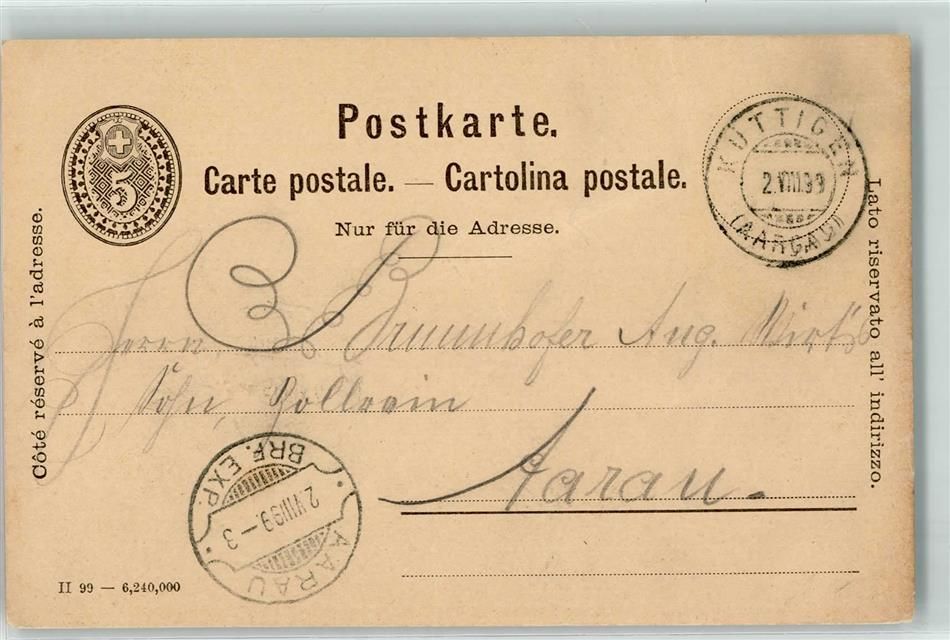 Postkarte.
Carte postale. — Cartolina postale.
Nur für die Adresse.
5
KÜTTIGEN
2.VIII.99
(AARGAU)
Côté réservé à l'adresse.
Lato riservato all' indirizzo.
Herrn, Brummhofer Aug. Wirt's
Sohn, Zollrain
Aarau.
BRF. EXP.
2.VIII99-3
AARAU
II 99 — 6,240,000